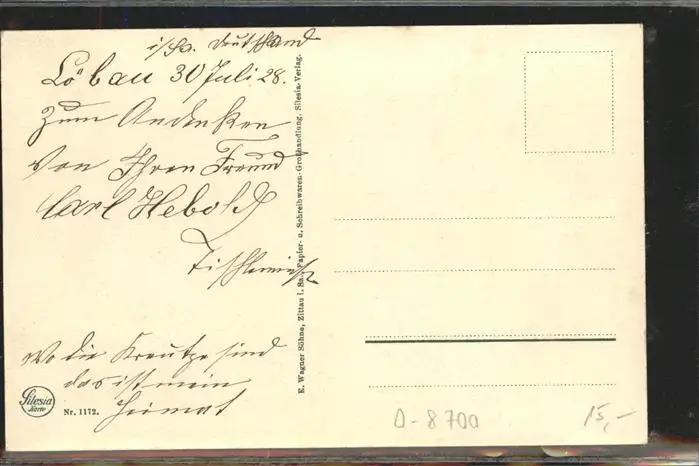 i/Sa. Deutschland
Löbau 30 Juli 28.
Zum Andenken
von Ihren Freund
Carl Hebold
Tischlermstr
Wo die Kreutze sind
das ist mein
Heimat
Silesia
Karte
Nr. 1172.
E. Wagner Söhne, Zittau i. Sa., Papier- u. Schreibwaren-Großhandlung. Silesia-Verlag.
D-8700
15,-